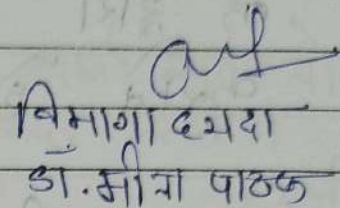 विभागाध्यक्षा
डॉ. मीरा पाठक